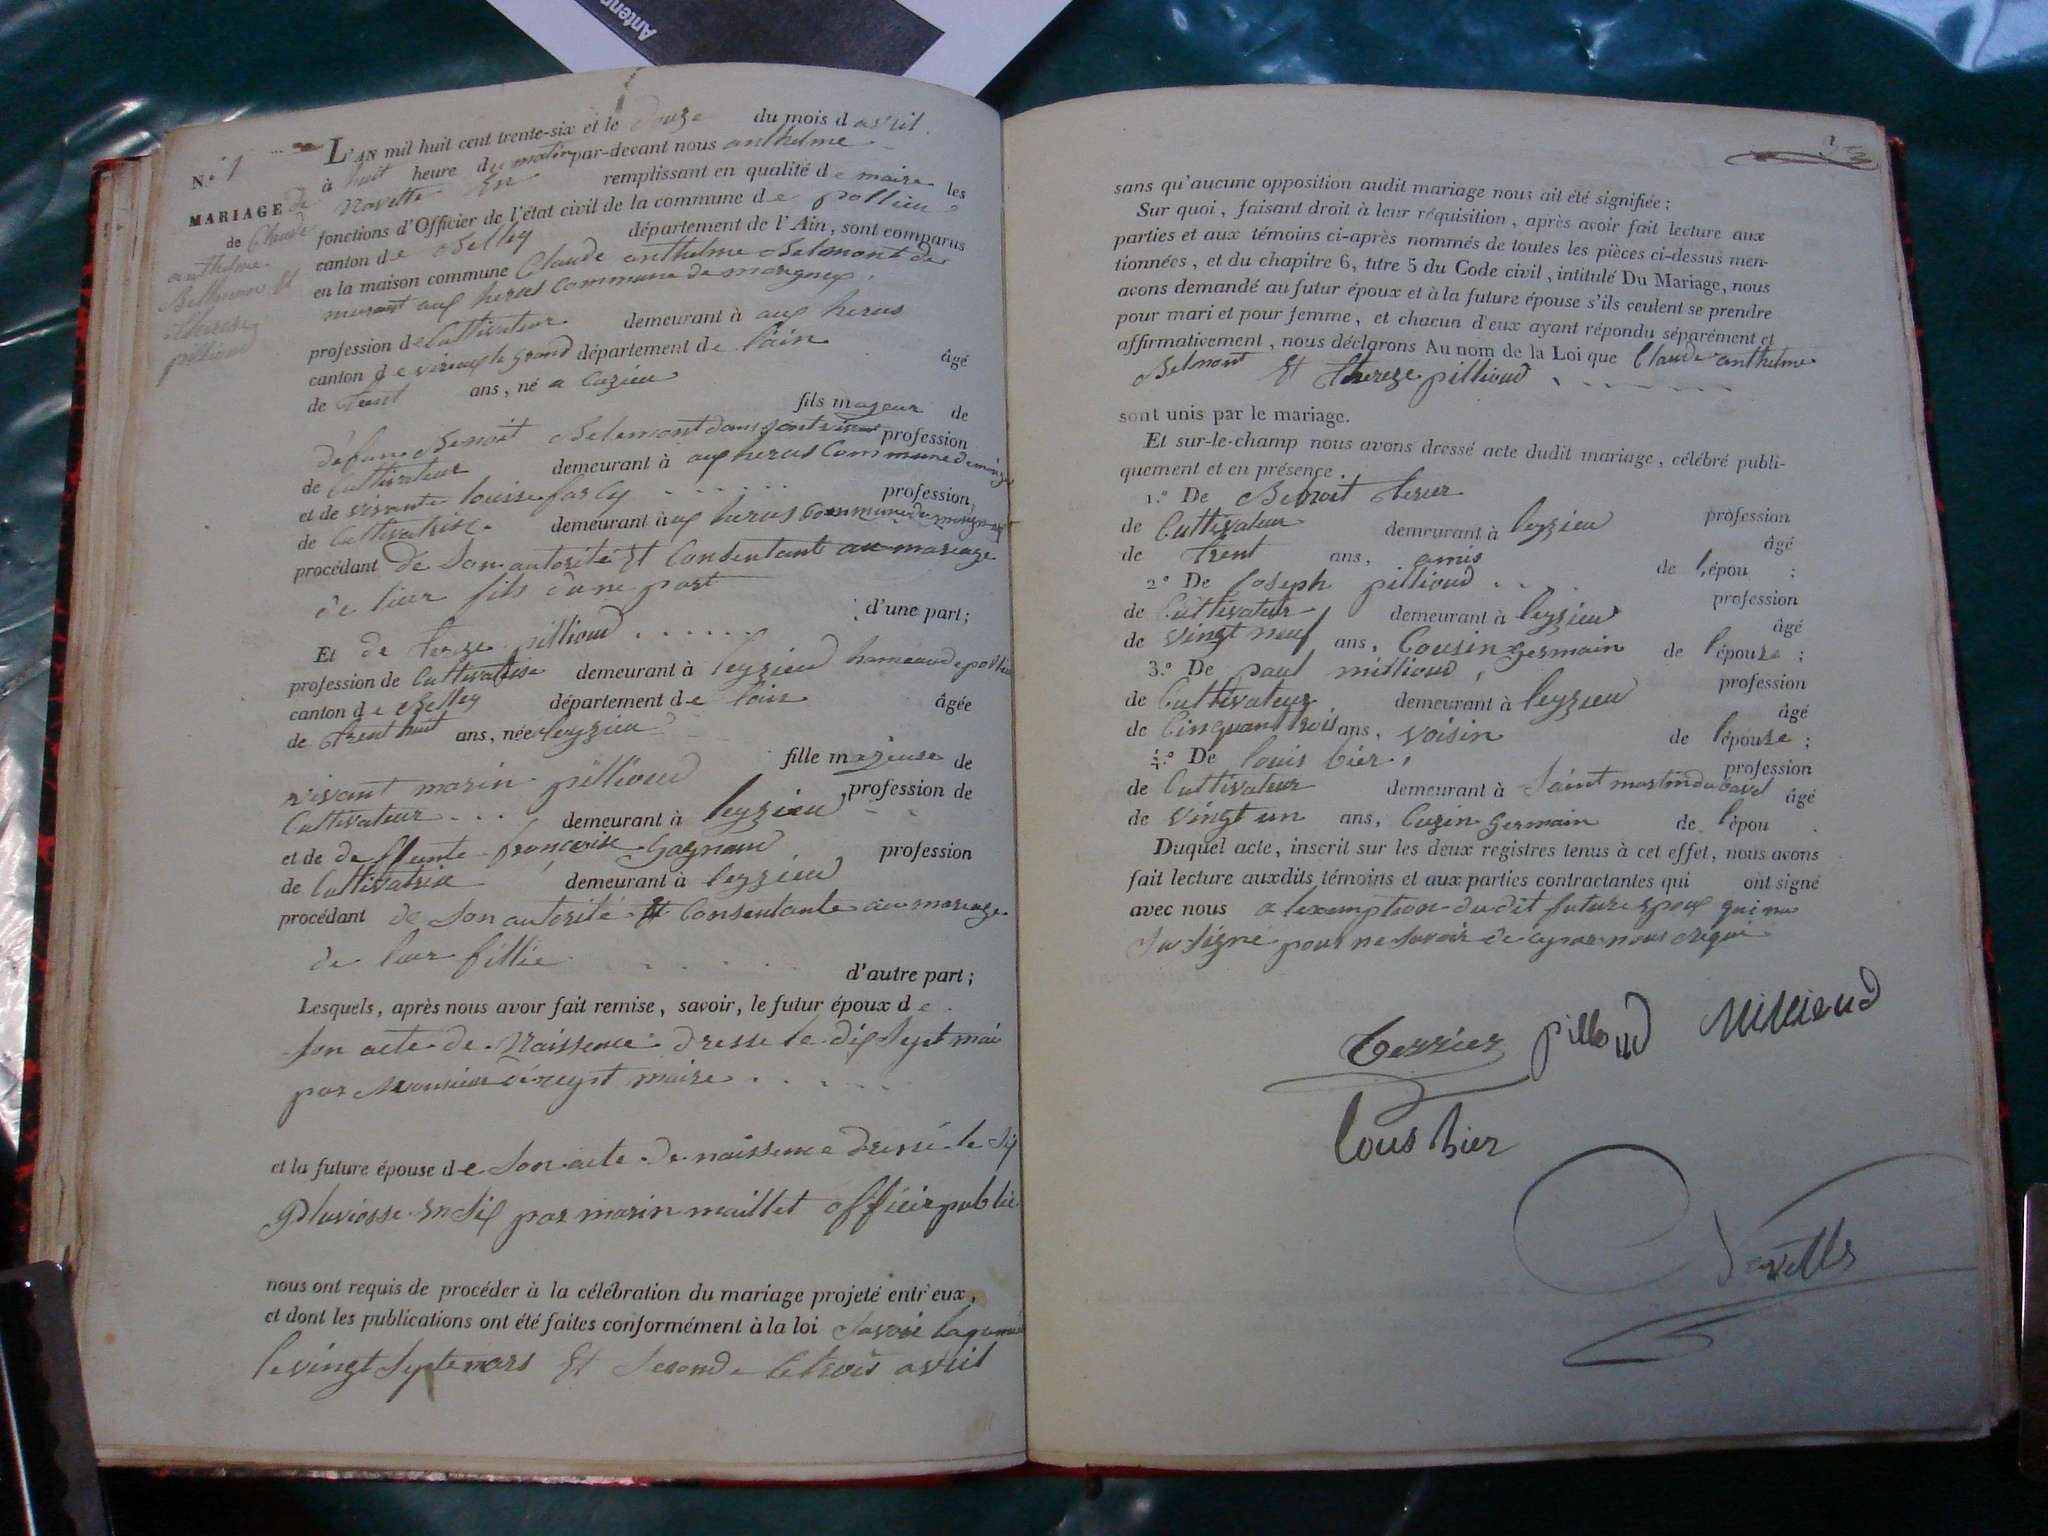 Antenn
N.º 1
L'AN mil huit cent trente-six et le douze du mois d avril
à huit heure du matin par-devant nous anthelme
MARIAGE de
Navette En remplissant en qualité de maire les
fonctions d'Officier de l'état civil de la commune de pollieu
de Claude
anthelme
Bellmon Et
therese
pillioud
canton de Belley département de l'Ain, sont comparus
en la maison commune Claude anthelme Belemont de
murant aux herus commune de marigneux
profession de Cultivateur demeurant à aux herus
canton de virieux le grand département de lain âgé
de trent ans, né a Cuzieu
fils majeur de
défun Benoit Belemont dans sont vivant profession
de Cultivateur demeurant à aux herus Commune de
et de vivante louise farcy profession
de Cultivatrise demeurant à aux herus Commune de
procédant de son autorité Et Consentant au mariage
de lieur fils d'une part
d'une part;
Et de terese pillioud
profession de Cultivatrise demeurant à leyzieu hameau de pollieu
canton de Belley département de lain âgée
de trent huit ans, née leyzieu
fille majeuse de
vivant marin pillioud profession de
Cultivateur demeurant à leyzieu
et de deffunte françoise Gagnoud profession
de Cultivatrise demeurant à leyzieu
procédant de son autorité Et Consentante au mariage
de leur fillie
d'autre part;
Lesquels, après nous avoir fait remise, savoir, le futur époux de
son acte de Naissence dresse le dix sept mai
par Monsieur maire
et la future épouse de son acte de naissence dressé le six
Pluviosse En six par marin maillet officier public
nous ont requis de procéder à la célébration du mariage projeté entr'eux,
et dont les publications ont été faites conformément à la loi savoir
le vingt septe mars Et seconde le trois avril
sans qu'aucune opposition audit mariage nous ait été signifiée;
Sur quoi, faisant droit à leur réquisition, après avoir fait lecture aux
parties et aux témoins ci-après nommés de toutes les pièces ci-dessus men-
tionnées, et du chapitre 6, titre 5 du Code civil, intitulé Du Mariage, nous
avons demandé au futur époux et à la future épouse s'ils veulent se prendre
pour mari et pour femme, et chacun d'eux ayant répondu séparément et
affirmativement, nous déclarons Au nom de la Loi que Claude anthelme
Belmont Et thereze pillioud
sont unis par le mariage.
Et sur-le-champ nous avons dressé acte dudit mariage, célébré publi-
quement et en présence
1.º De Benoit terier
profession
de Cultivateur demeurant à leyzieu
âgé
de trent ans, amis de l'épou ;
2.º De Joseph pillioud
profession
de Cultivateur demeurant à leyzieu
âgé
de vingt neuf ans, Cousin germain de l'épouse ;
3.º De paul millioud
profession
de Cultivateur demeurant à leyzieu
âgé
de Cinquant trois ans, voisin de l'épouse ;
4.º De louis bier
profession
de Cultivateur demeurant à Saint martin du bavel âgé
de vingt un ans, Cuzin Germain de l'épou
Duquel acte, inscrit sur les deux registres tenus à cet effet, nous avons
fait lecture auxdits témoins et aux parties contractantes qui ont signé
avec nous a lexemption du dit futur Epoux qui na
su signé pour ne savoir de ce par nous requi
Terrier pilloud Millioud
Louis bier
Navette